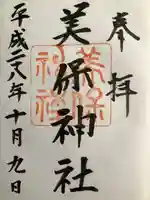 奉拝
美保神社
平成二八年十月九日
美保
神社